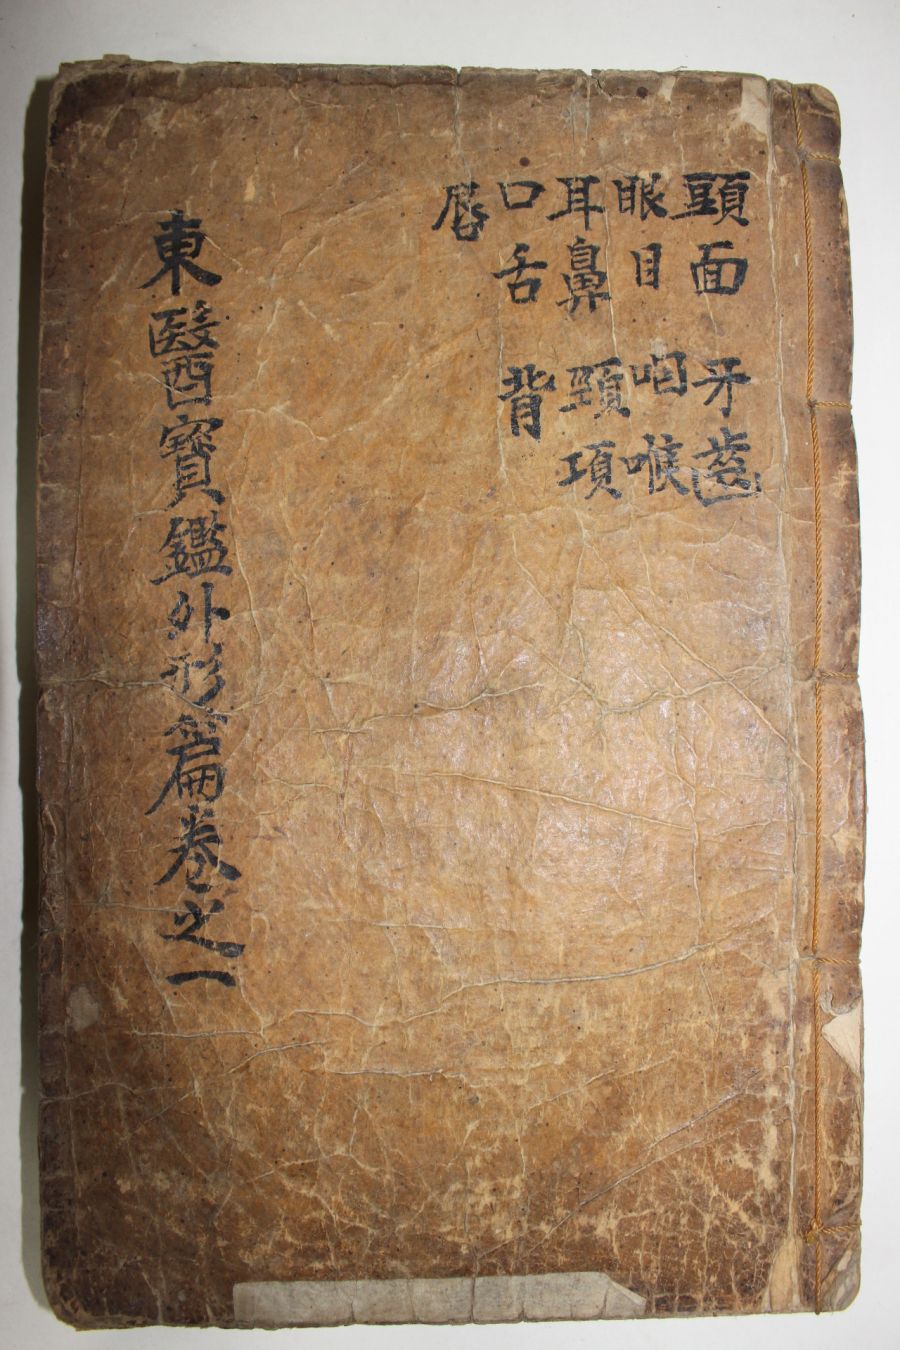 頭面 牙齒
眼目 咽喉
耳鼻 頸項
口舌 背
唇
東醫寶鑑外形篇卷之一